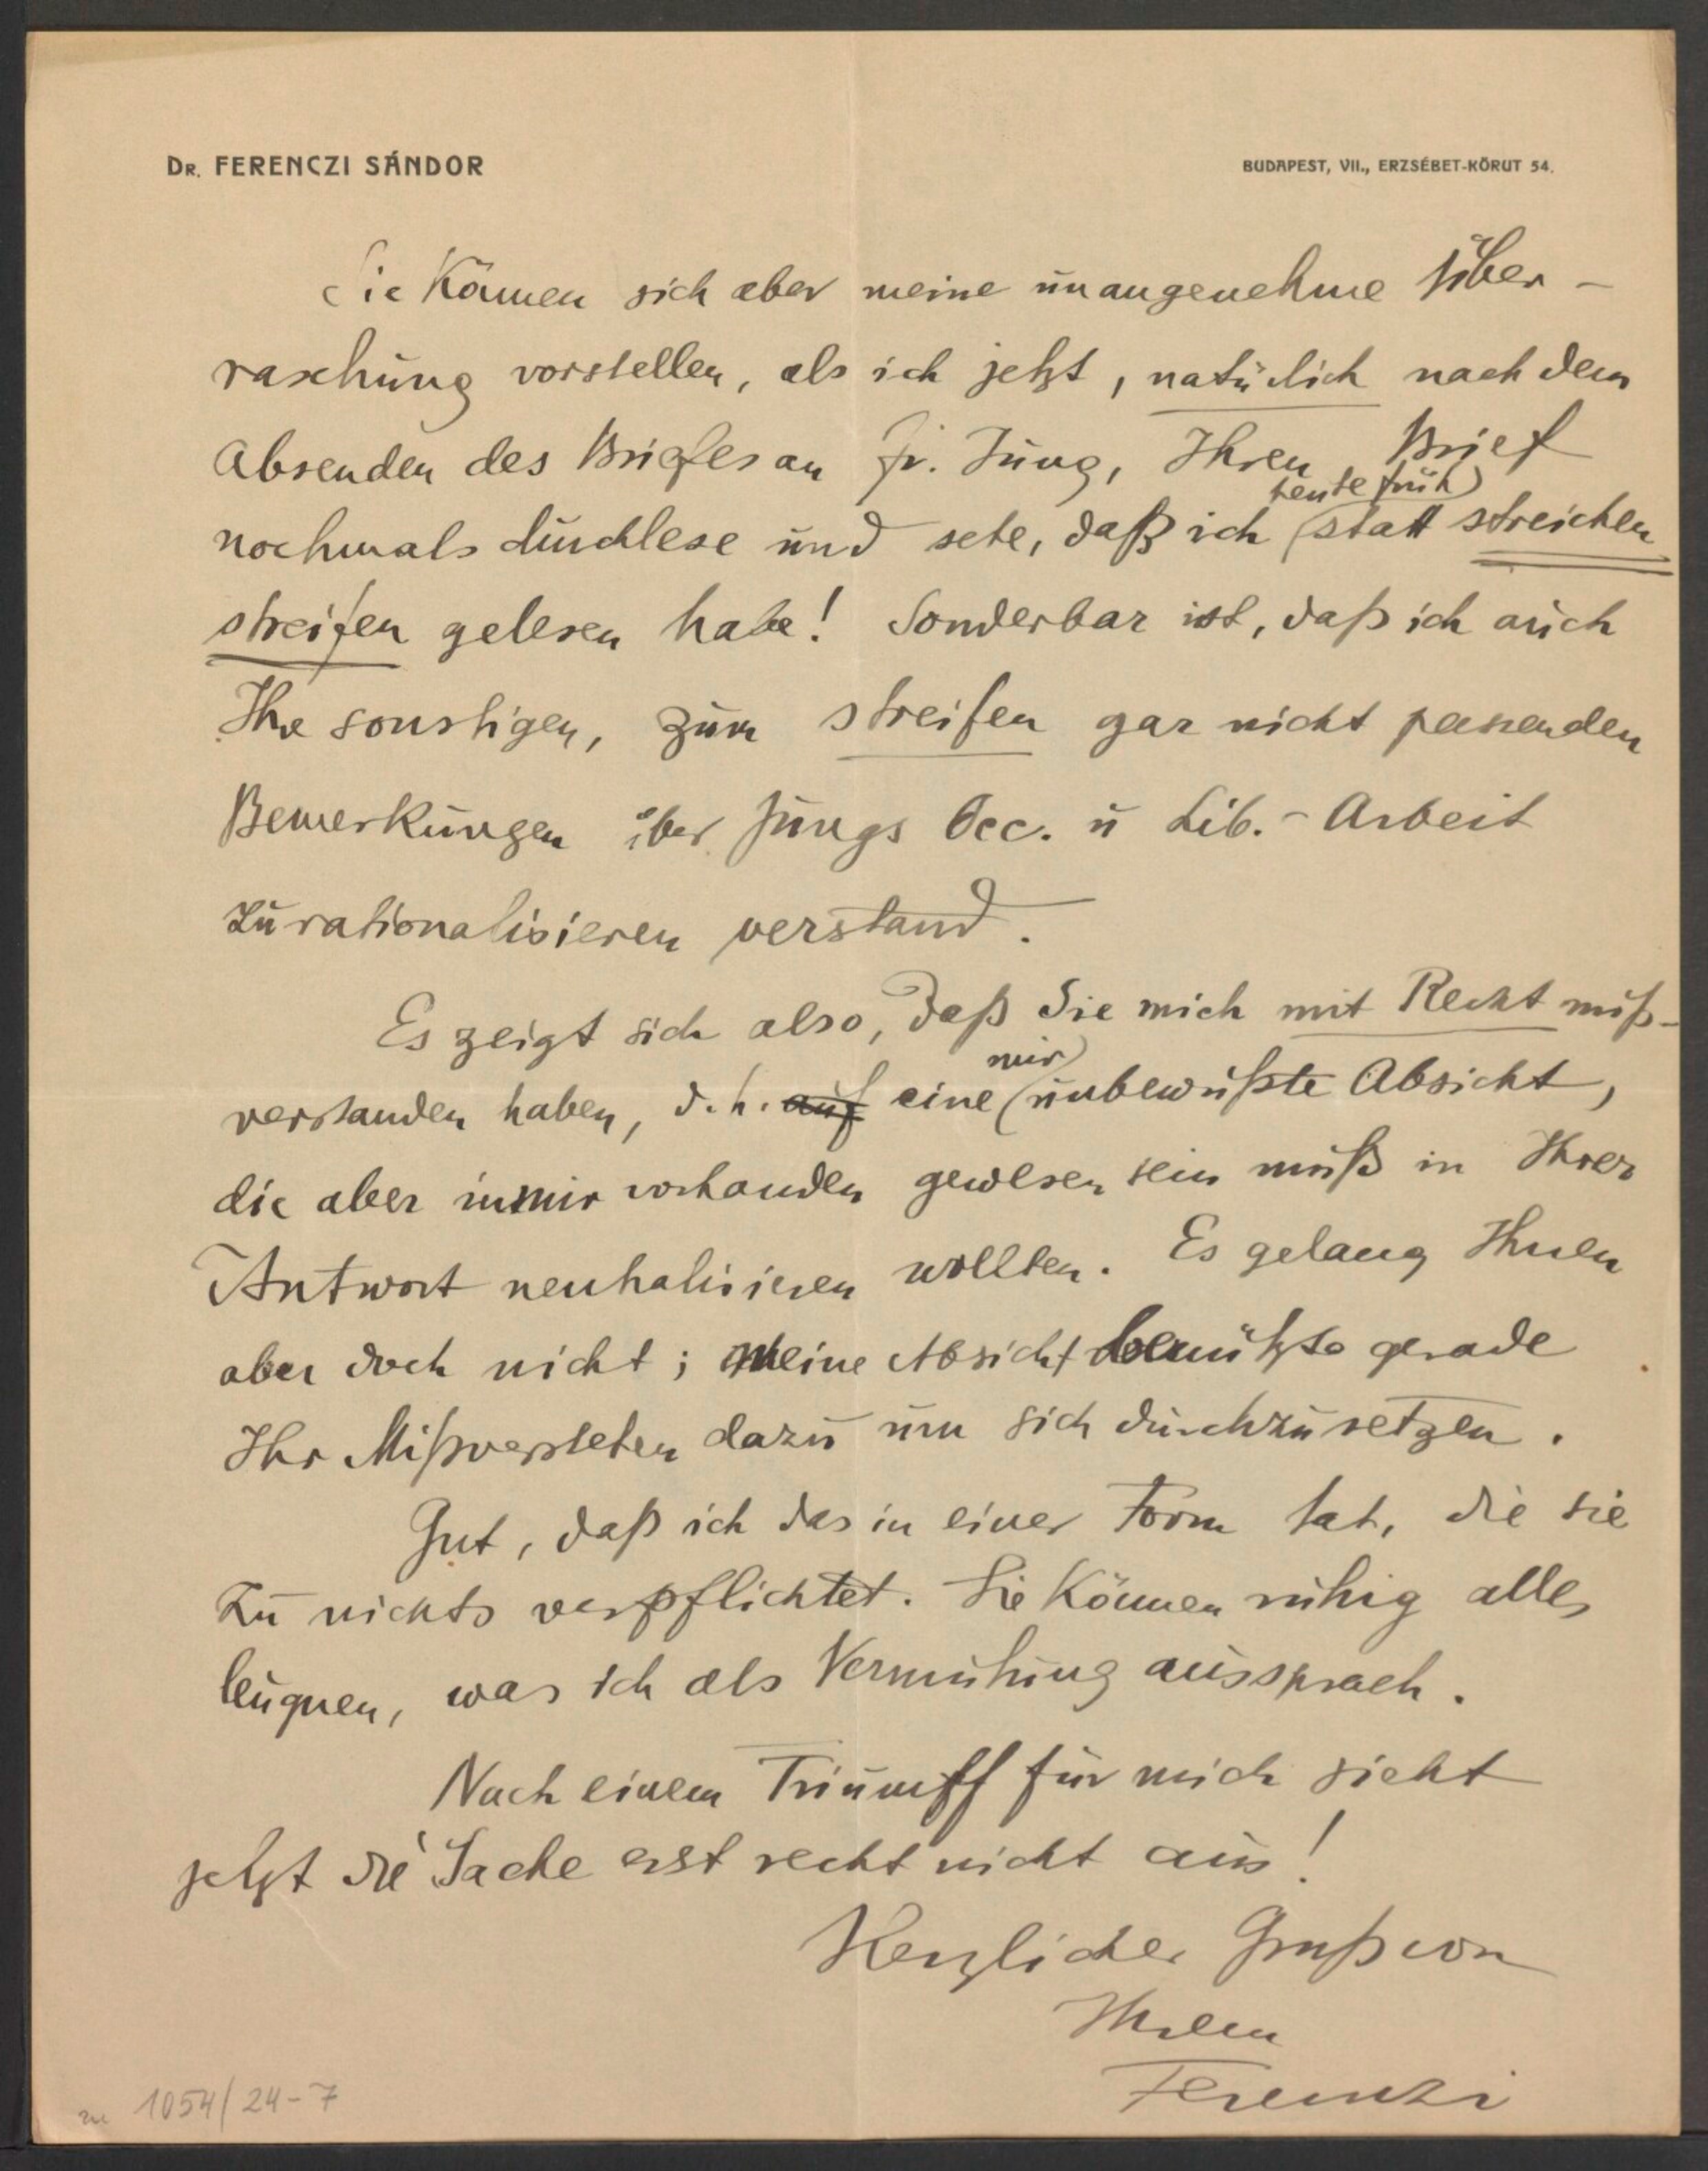 Dr. FERENCZI SÁNDOR
BUDAPEST, VII., ERZSÉBET-KÖRUT 54.
Sie können sich aber meine unangenehme Über-
raschung vorstellen, als ich jetzt, natürlich nach dem
Absenden des Briefes an Fr. Jung, Ihren Brief
nochmals durchlese und sehe, daß ich heute früh statt streichen
streifen gelesen habe! Sonderbar ist, daß ich auch
Ihre sonstigen, zum streifen gar nicht passenden
Bemerkungen über Jungs Occ. u Lib.-Arbeit
zu rationalisieren verstand.
Es zeigt sich also, daß Sie mich mit Recht miß-
verstanden haben, d.h. auf eine mir unbewußte Absicht,
die aber in mir vorhanden gewesen sein muß in Ihrer
Antwort neutralisieren wollten. Es gelang Ihnen
aber doch nicht; meine Absicht benützte gerade
Ihr Mißverstehen dazu um sich durchzusetzen.
Gut, daß ich das in einer Form tat, die sie
zu nichts verpflichtet. Sie können ruhig alles
leugnen, was ich als Vermuthung aussprach.
Nach einem Triumff für mich sieht
jetzt die Sache erst recht nicht aus!
Herzlicher Gruß von
Ihrem
Ferenczi
zu 1054/24-7